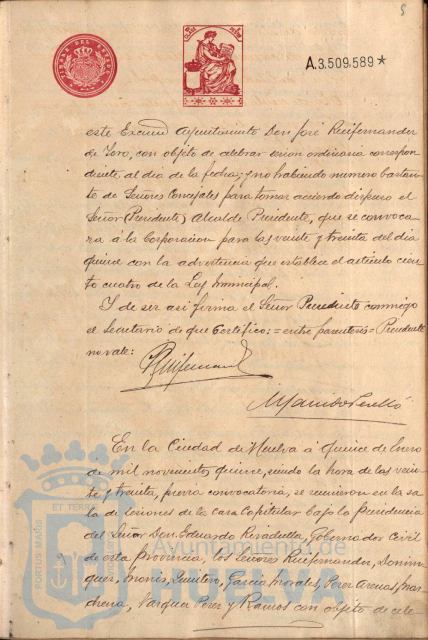 5
A.3.509.589*
este Excmo Ayuntamiento Don José Ruifernandez
de Toro, con objeto de celebrar sesion ordinaria correspon
diente al dia de la fecha; y no habiendo numero bastante
de Señores Concejales para tomar acuerdo dispuso el
Señor (Presidente) Alcalde Presidente, que se convoca
ra á la Corporacion para las veinte y treinta del dia
quince con la advertencia que establece el articulo cien
to cuatro de la Ley Municipal.
Y de ser asi firma el Señor Presidente conmigo
el Secretario de que Certifico: = entre parentesis = Presidente
no vale:
En la Ciudad de Huelva á quince de Enero
de mil novecientos quince, siendo la hora de las vein
te y treinta, previa convocatoria, se reunieron en la sa
la de sesiones de la casa Capitular bajo la Presidencia
del Señor Don Eduardo Rivadulla, Gobernador Civil
de esta Provincia, los Señores Ruifernandez, Domin
guez, Monis, Quintero, Garcia Morales, Perez Arenas, Mar
chena, Vazquez Perez y Ramos con objeto de cele
Ayuntamiento de
HUELVA
PORTUS MARIS
ET TERRAE